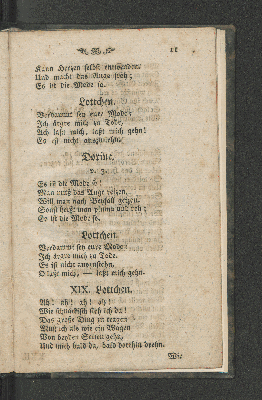 11
Kann Herzen selbst entwenden.
Und macht das Auge froh;
Es ist die Mode so.
Lottchen.
Verdammt sey eure Mode!
Ich ärgre mich zu Tode,
Ach laßt mich, laßt mich gehn!
Es ist nicht auszustehn.
Dorine.
Es ist die Mode so!
Man muß das Auge reizen,
Will man nach Beyfall geizen.
Sonst heißt man dumm und roh;
Es ist die Mode so.
Lottchen.
Verdammt sey eure Mode!
Ich ärgre mich zu Tode.
Es ist nicht auszustehn,
O laßt mich, — laßt mich gehn.
XIX. Lottchen.
Ah! ah! ah! ah!
Wie schändlich steh ich da!
Das große Ding zu tragen
Muß ich als wie ein Wagen
Von beyden Seiten gehn,
Und mich bald da, bald dorthin drehn.
Wie